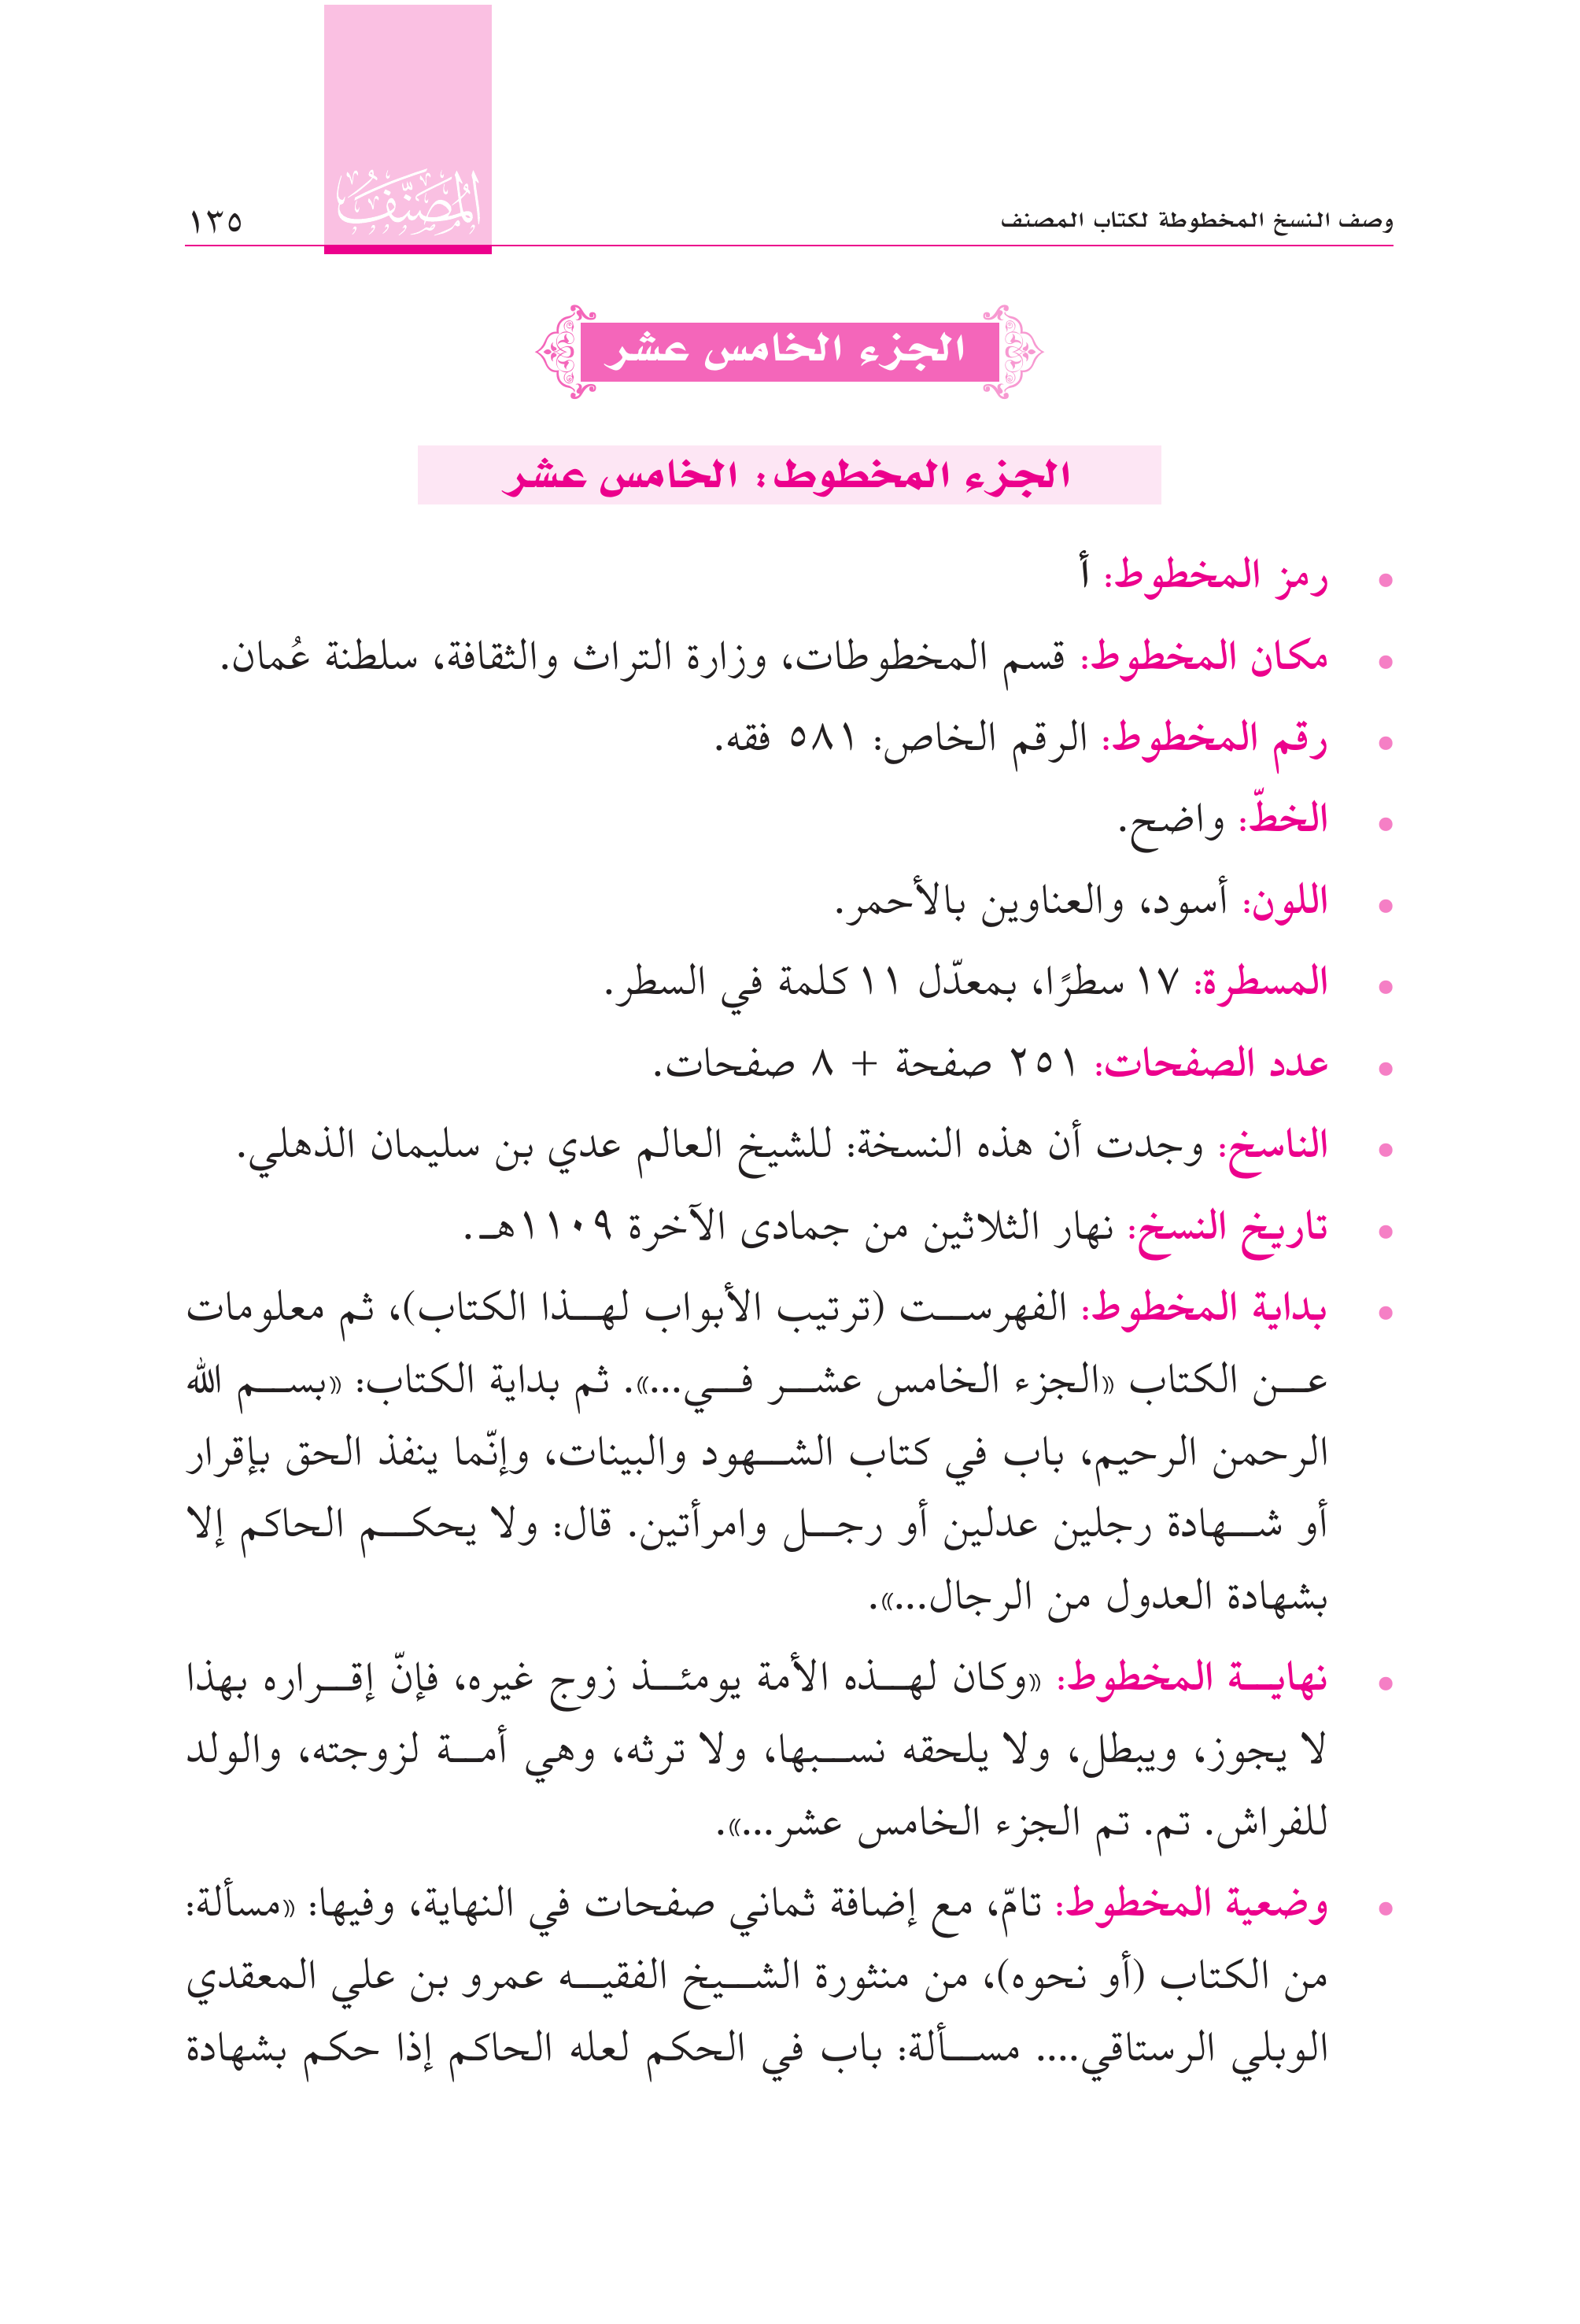 وصف النسخ المخطوطة لكتاب المصنف
المُصَنَّفُ
١٣٥
الجزء الخامس عشر
الجزء المخطوط: الخامس عشر
• رمز المخطوط: أ
• مكان المخطوط: قسم المخطوطات، وزارة التراث والثقافة، سلطنة عُمان.
• رقم المخطوط: الرقم الخاص: ٥٨١ فقه.
• الخطّ: واضح.
• اللون: أسود، والعناوين بالأحمر.
• المسطرة: ١٧ سطرًا، بمعدّل ١١ كلمة في السطر.
• عدد الصفحات: ٢٥١ صفحة + ٨ صفحات.
• الناسخ: وجدت أن هذه النسخة: للشيخ العالم عدي بن سليمان الذهلي.
• تاريخ النسخ: نهار الثلاثين من جمادى الآخرة ١١٠٩هـ.
• بداية المخطوط: الفهرست (ترتيب الأبواب لهذا الكتاب)، ثم معلومات
عن الكتاب «الجزء الخامس عشر في...». ثم بداية الكتاب: «بسم الله
الرحمن الرحيم، باب في كتاب الشهود والبينات، وإنّما ينفذ الحق بإقرار
أو شهادة رجلين عدلين أو رجل وامرأتين. قال: ولا يحكم الحاكم إلا
بشهادة العدول من الرجال...».
• نهاية المخطوط: «وكان لهذه الأمة يومئذ زوج غيره، فإنّ إقراره بهذا
لا يجوز، ويبطل، ولا يلحقه نسبها، ولا ترثه، وهي أمة لزوجته، والولد
للفراش. تم. تم الجزء الخامس عشر...».
• وضعية المخطوط: تامّ، مع إضافة ثماني صفحات في النهاية، وفيها: «مسألة:
من الكتاب (أو نحوه)، من منثورة الشيخ الفقيه عمرو بن علي المعقدي
الوبلي الرستاقي.... مسألة: باب في الحكم لعله الحاكم إذا حكم بشهادة